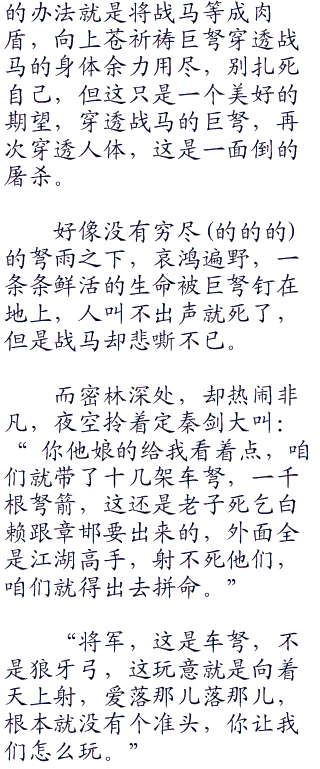 的办法就是将战马等成肉
盾，向上苍祈祷巨弩穿透战
马的身体余力用尽，别扎死
自己，但这只是一个美好的
期望，穿透战马的巨弩，再
次穿透人体，这是一面倒的
屠杀。
好像没有穷尽(的的的)
的弩雨之下，哀鸿遍野，一
条条鲜活的生命被巨弩钉在
地上，人叫不出声就死了，
但是战马却悲嘶不已。
而密林深处，却热闹非
凡，夜空拎着定秦剑大叫：
“ 你他娘的给我看着点，咱
们就带了十几架车弩，一千
根弩箭，这还是老子死乞白
赖跟章邯要出来的，外面全
是江湖高手，射不死他们，
咱们就得出去拼命。”
“将军，这是车弩，不
是狼牙弓，这玩意就是向着
天上射，爱落那儿落那儿，
根本就没有个准头，你让我
们怎么玩。”